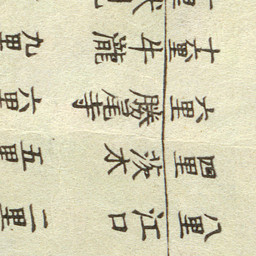 八里
江口
二里
四里
茨木
五里
六里
勝尾寺
六里
牛瀧
九里